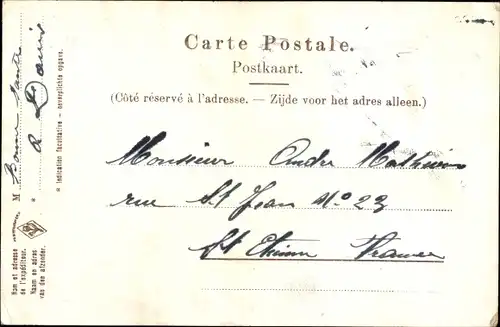 Carte Postale.
Postkaart.
(Côté réservé à l'adresse. — Zijde voor het adres alleen.)
Monsieur Andre Mathieu
rue St Jean No 23
St Etienne France
M Bonne Sante
a Paris
* Indication facultative — onverplichte opgave.
Nom et adresse
de l'expéditeur.
Naam en adres
van den afzender.